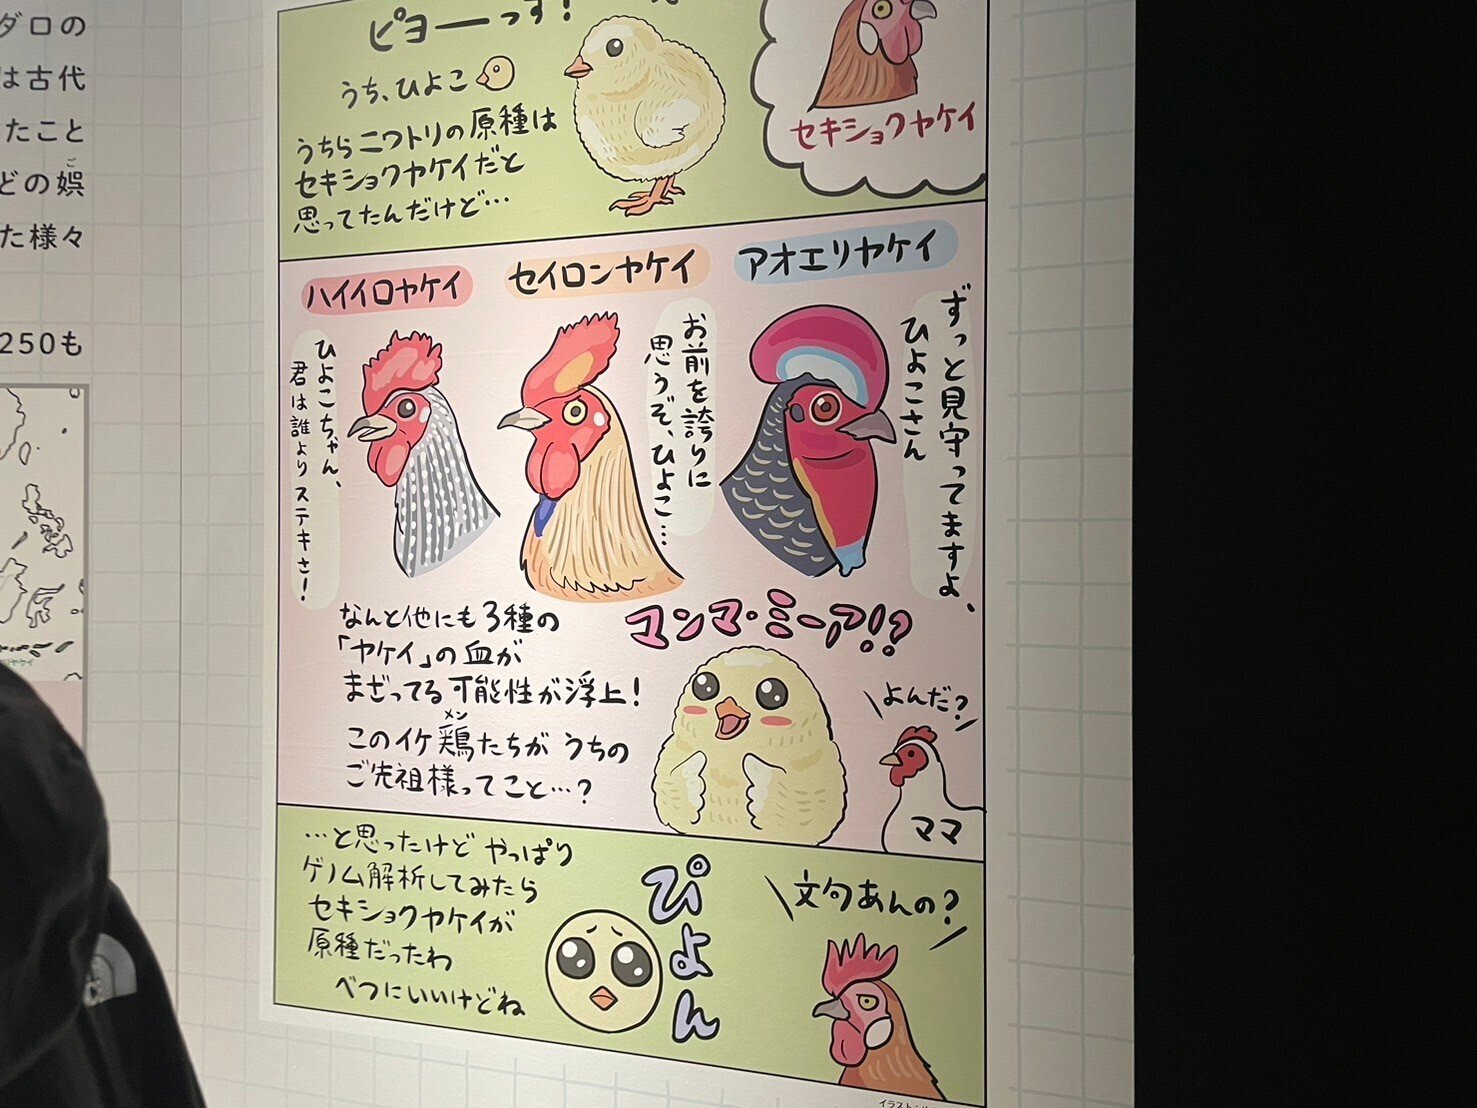 ダロの
は古代
たこと
どの娯
ご
た様々
250も
ピヨーっす!
うち、ひよこ
うちらニワトリの原種は
セキショクヤケイだと
思ってたんだけど…
セキショクヤケイ
ハイイロヤケイ
セイロンヤケイ
アオエリヤケイ
ひよこちゃん、
君は誰よりステキさ!
お前を誇りに
思うぞ、ひよこ…
ずっと見守ってますよ、
ひよこさん
なんと他にも3種の
「ヤケイ」の血が
まざってる可能性が浮上!
メン
このイケ鶏たちがうちの
ご先祖様ってこと…?
マンマ・ミーア!?
よんだ?
ママ
…と思ったけどやっぱり
ゲノム解析してみたら
セキショクヤケイが
原種だったわ
べつにいいけどね
ぴよん
文句あんの?
イラスト: